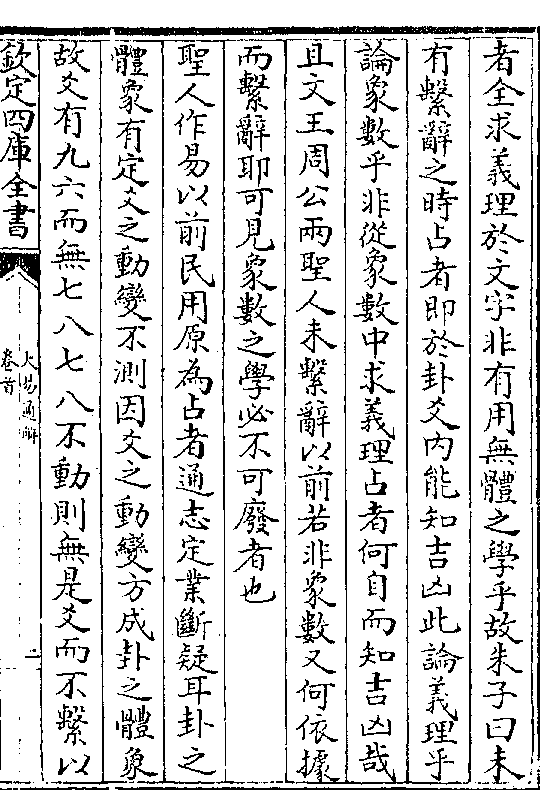 者全求義理於文字非有用無體之學乎故朱子曰未
有繫辭之時占者即於卦爻内能知吉凶此論義理乎
論象數乎非從象數中求義理占者何自而知吉凶哉
且文王周公兩聖人未繫辭以前若非象數又何依據
而繫辭耶可見象數之學必不可廢者也
聖人作易以前民用原為占者通志定業斷疑耳卦之
體象有定爻之動變不測因爻之動變方成卦之體象
故爻有九六而無七八七八不動則無是爻而不繫以
欽定四庫全書
大易通解
卷首
一